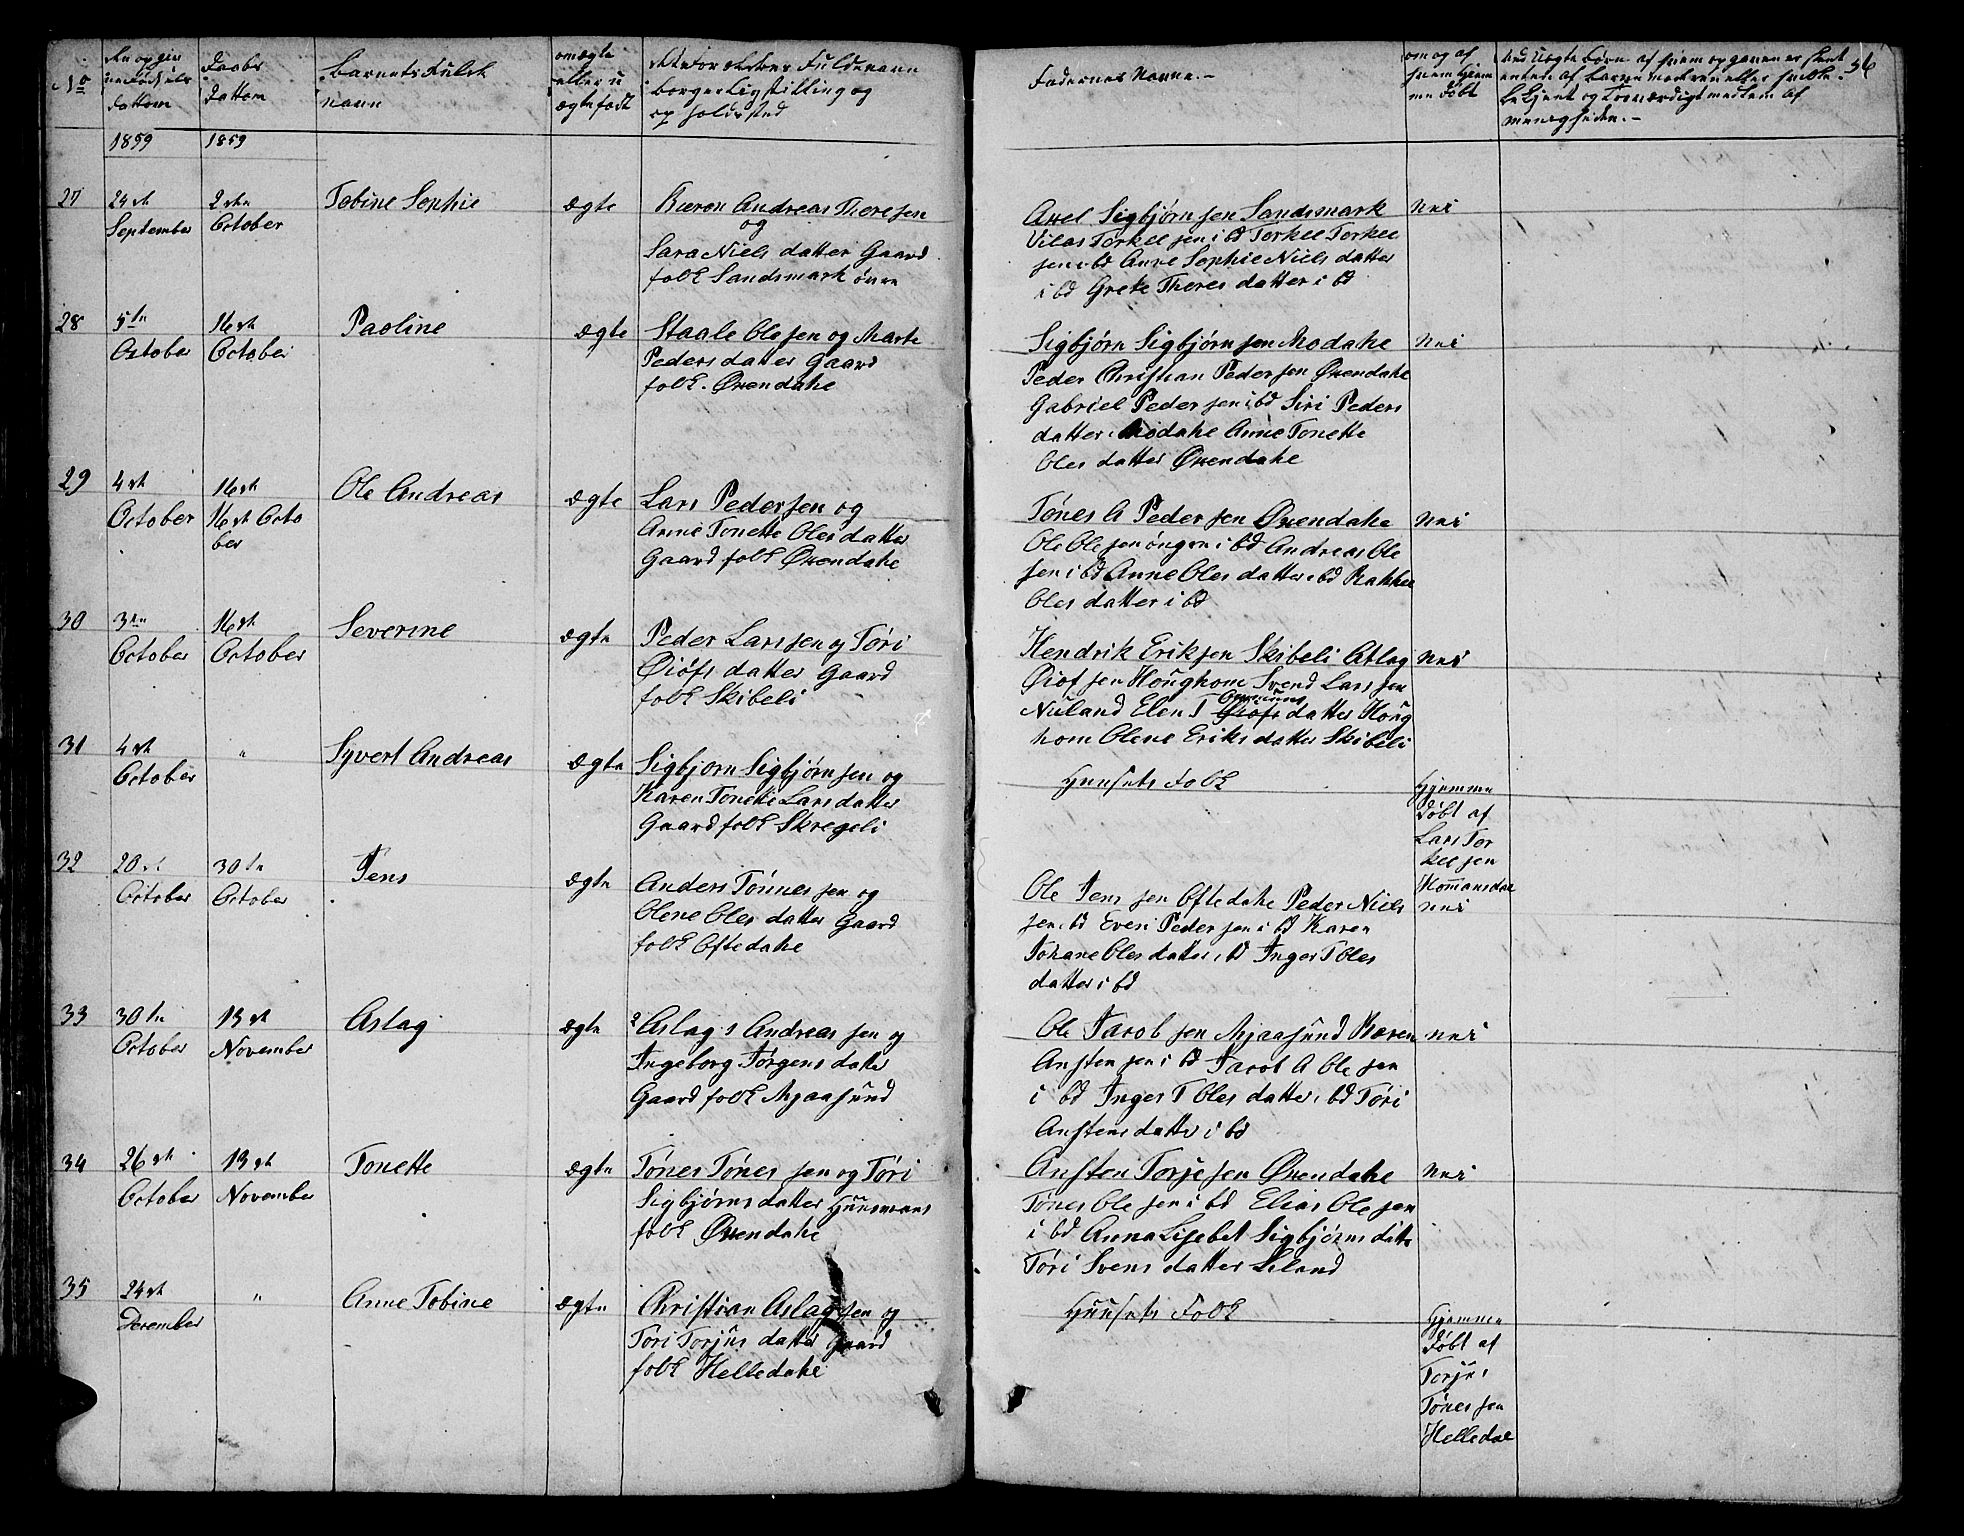 No
Daabs
Dattom
Barnets Fulde
navn
om ægte
eller u
ægte født
Forældres Fulde navn
borgerlig stilling og
op holds sted
Fadernes Navne.-
om og af
hvem Hjem
me døbt
56
menigheden.-
1859
1859
27
24de
September
2den
October
Tobine Sophie
ægte
Andreas Theresen
og
Sara Niels datter Gaard
folk Sandsmark øvre
Axel Sigbjørnsen Sandsmark
Torkelsen i bd Torkel Torkel
sen i bd Anne Sophie Niels datter
i bd Grete Theres datter i bd
Nei
28
5te
October
16de
October
Paoline
ægte
Staale Olesen og Marte
Peders datter Gaard
folk. Øxendahe
Sigbjørn Sigbjørnsen Modahe
Peder Christian Pedersen Øxendahe
Gabriel Pedersen i bd Siri Peders
datter Modahe Anne Tonette
Oles datter Øxendahe
Nei
29
4de
October
16de
16de Octo
ber
Ole Andreas
ægte
Lars Pedersen og
Anne Tonette Olesdatter
Gaard folk Øxendahe
Tønes A Pedersen Øxendahe
Ole Olesen i bd Andreas Ole
sen i bd Anne Oles datter i bd
Oles datter i bd
Nei
30
3die
October
16de
October
Severine
ægte
Peder Larsen og Tøri
Øiøfs datter Gaard
folk Skibeli
Hendrik Eriksen Skibeli Atlag
Øiofsen Houghom Svend Larsen
Nuland Elen T Øiofs datter Houg
hom Olene Eriks datter Skibeli
nei
31
4de
October
"
Syvert Andreas
ægte
Sigbjørn Sigbjørnsen og
Karen Tonette Larsdatter
Gaard folk Skregeli
Huusets Folk
Hjemme
døbt af
Lars Tor
kelsen
Homansdae
32
20de
October
30te
October
Jens
ægte
Anders Tønnessen og
Olene Oles datter Gaard
folk Oftedahe
Ole Jens sen Oftedahe Peder Niels
sen i bd Even Pedersen i bd Karen
Johane Oles datter i bd Inger T Oles
datter i bd
nei
33
30te
October
13de
November
Aslag
ægte
Aslag s Andreas sen og
Ingeborg Jørgens datter
Gaard folk Mjaasund
Ole Jacobsen Mjaasund Karen
Anstensen i bd Jacob A Olesen
i bd Inger T Oles datter i bd Tøri
Anstens datter i bd
nei
34
26de
October
13de
November
Tonette
ægte
Tønes Tønessen og Tøri
Sigbjørns datter Huusmans
folk Øxendahe
Ansten Torjesen Øxendahe
Tønes Olesen i bd Elias Olesen
i bd Anna Lisebet Sigbjørns datter
Tøri Svens datter Leland
nei
35
24de
December
"
Anne Tobine
ægte
Christian Aslagsen og
Tøri Torjus datter Gaard
folk Helledahe
Huusets Folk
Hjemme
døbt af
Torjus
Tønessen
Helledae